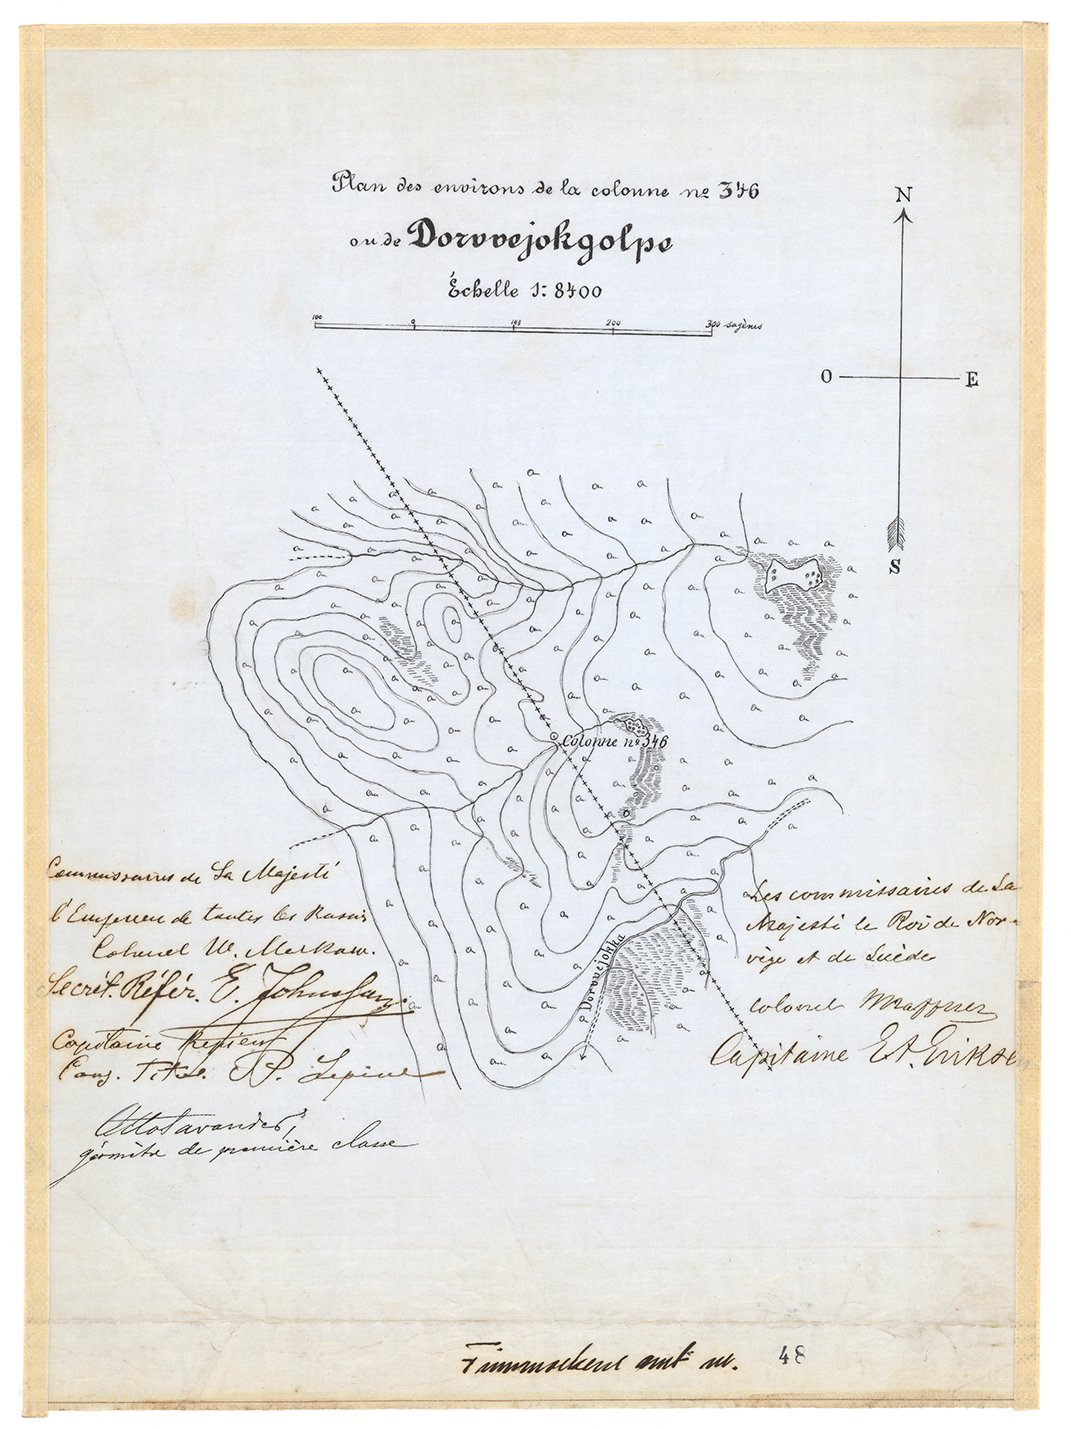 Plan des environs de la colonne no 346
ou de Dorvvejokgolpe
Échelle 1: 8400
100 0 100 200 300 sagènes
N
O E
S
Colonne no 346
Dorvvejokka
Commissaires de Sa Majesté
l'Empereur de toutes les Russies
Colonel W.
Secrét. Référ. E.
Capitaine
Cons. Tit. P. Lepine
géomètre de première classe
Les commissaires de Sa
Majesté le Roi de Nor-
vège et de Suède
colonel
Capitaine Eriksen
amt nr. 48